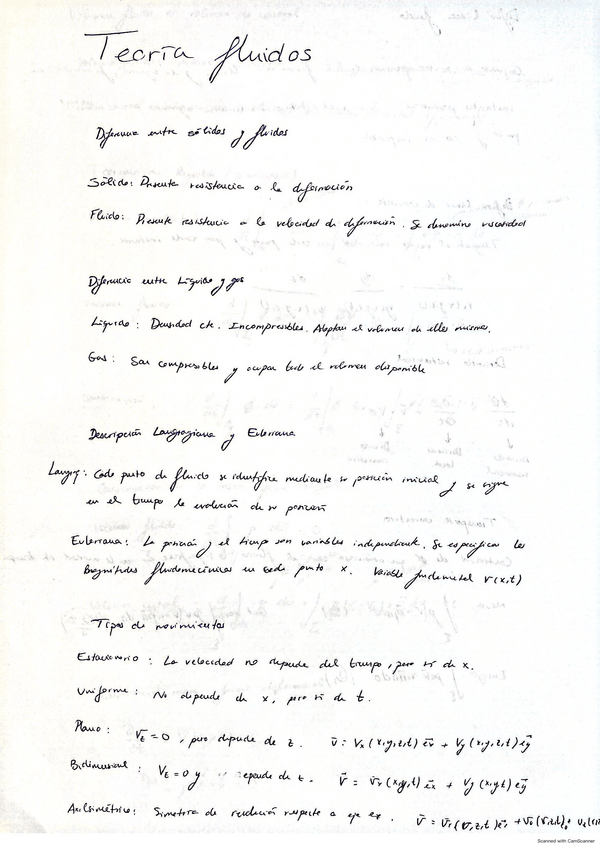 Teoría fluidos
Diferencia entre sólidos y fluidos
Sólido: Presenta resistencia a la deformación
Fluido: Presenta resistencia a la velocidad de deformación. Se denomina viscosidad
Diferencia entre Líquido y gas
Líquido: Densidad cte. Incompresibles. Adoptan el volumen de ellos mismos.
Gas: Son compresibles y ocupan todo el volumen disponible
Descripción Langragiana y Euleriana
Langrg: Cada punto de fluido se identifica mediante su posición inicial y se sigue
en el tiempo la evolución de su posición
Euleriana: La posición y el tiempo son variables independiente. Se especifican las
magnitudes fluidomecánicas en cada punto x. Variable fundamental v(x,t)
Tipos de movimientos
Estacionario: La velocidad no depende del tiempo, pero si de x.
Uniforme: No depende de x, pero si de t.
Plano: Vz = 0, pero depende de z. v̄ = Vx(x,y,z,t) ēx + Vy(x,y,z,t) ēy
Bidimensional: Vz = 0 y depende de z. v̄ = v̄x(x,y,t) ēx + Vy(x,y,t) ēy
Axilsimétrico: Simetría de revolución respecto a eje ex.
Scanned with CamScanner